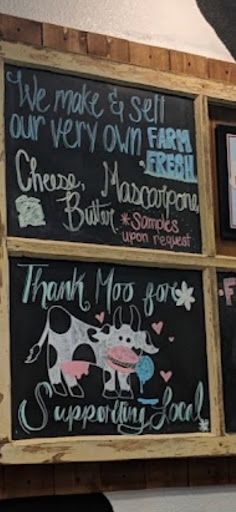 We make & sell
our very own FARM
FRESH
Cheese, Mascarpone,
Butter *Samples
upon request
Thank Moo for
Supporting Local